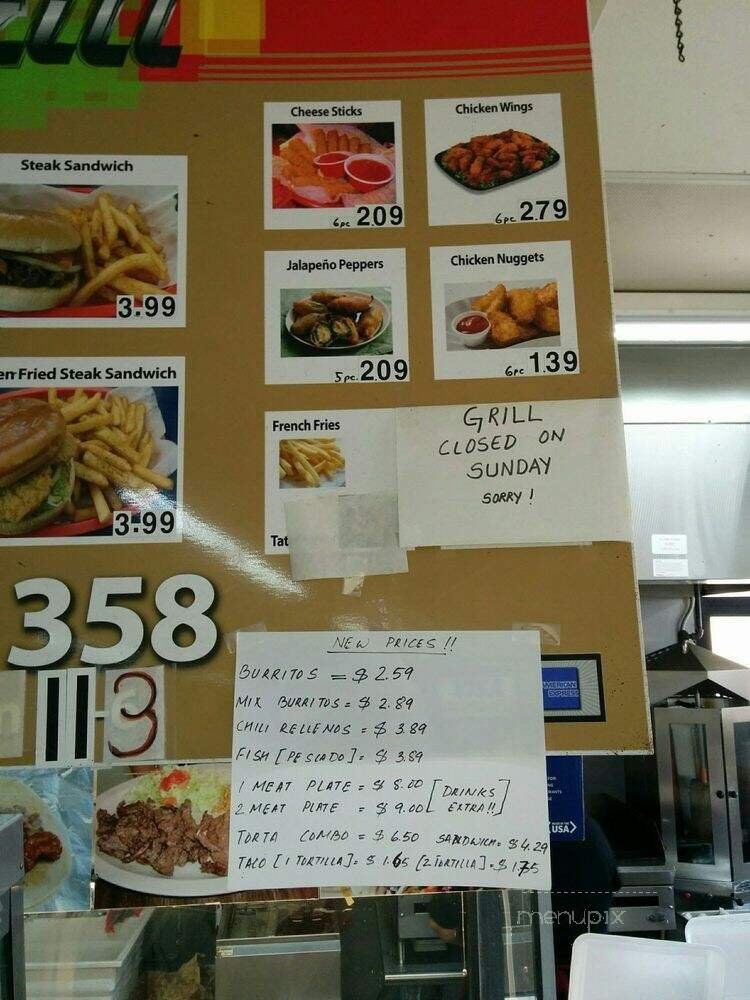 Steak Sandwich
3.99
Fried Steak Sandwich
3.99
Cheese Sticks
6pc 2.09
Chicken Wings
6pc 2.79
Jalapeño Peppers
5 pc. 2.09
Chicken Nuggets
6pc 1.39
French Fries
Tat
GRILL
CLOSED ON
SUNDAY
SORRY !
358
11-3
NEW PRICES !!
BURRITOS = $ 2.59
MIX BURRITOS = $ 2.89
CHILI RELLENOS = $ 3.89
FISH [PESCADO] = $ 3.89
1 MEAT PLATE = $ 8.00 [DRINKS
2 MEAT PLATE = $ 9.00 EXTRA!!]
TORTA COMBO = $ 6.50 SANDWICH = $4.29
TACO [1 TORTILLA] = $ 1.65 [2 TORTILLA] = $ 1.75
AMERICAN
EXPRESS
USA
menupix